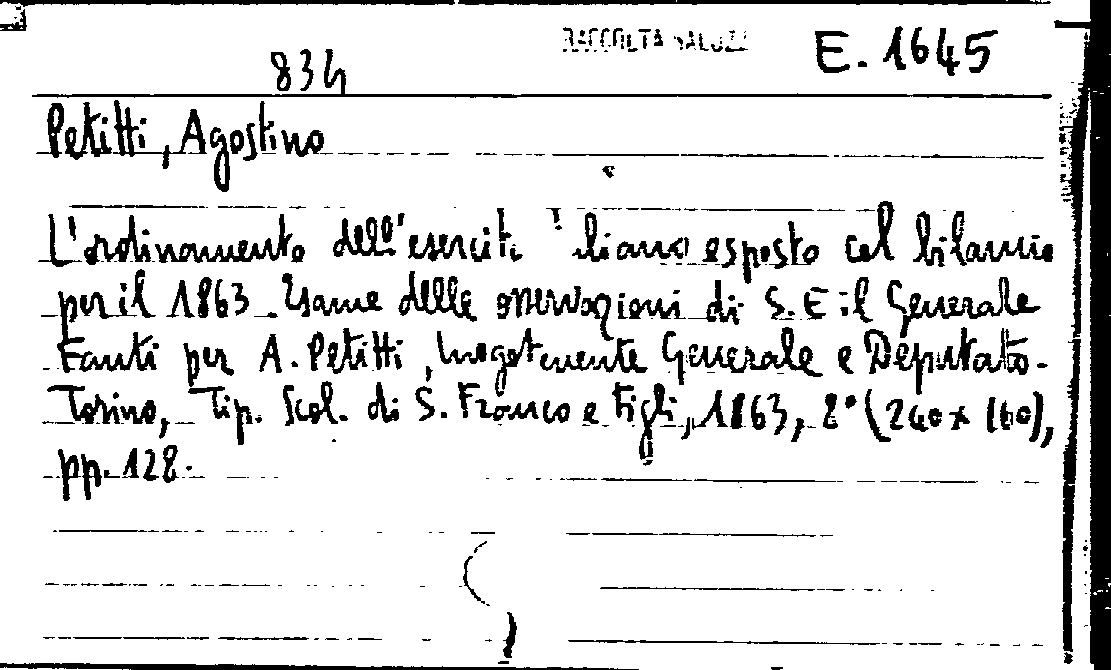 RACCOLTA SALUZZ
E. 1645
834
Petitti, Agostino
L'ordinamento dell'esercit liano esposto col bilancio
per il 1863. Esame delle osservazioni di S. E il Generale
Fanti per A. Petitti, luogotenente Generale e Deputato.
Torino, Tip. Scol. di S. Franco e Figli, 1863, 8° (240 x 160),
pp. 128.